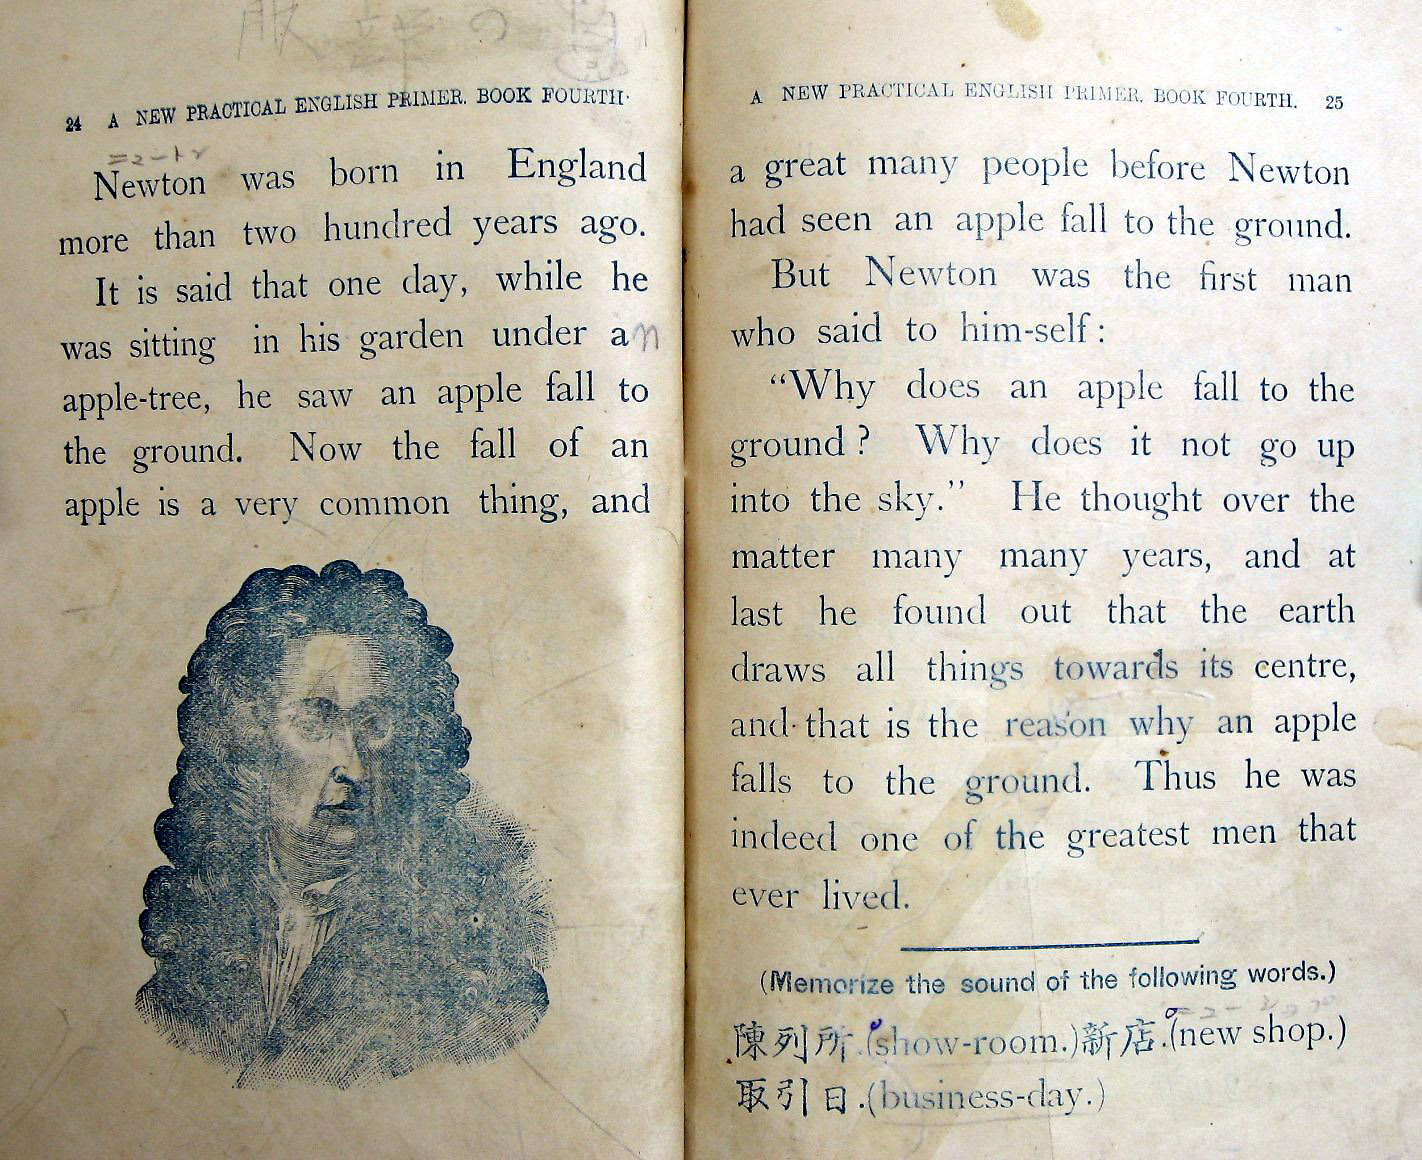 服部の
24 A NEW PRACTICAL ENGLISH PRIMER. BOOK FOURTH.
ニュートン
Newton was born in England
more than two hundred years ago.
It is said that one day, while he
was sitting in his garden under an
apple-tree, he saw an apple fall to
the ground. Now the fall of an
apple is a very common thing, and
A NEW PRACTICAL ENGLISH PRIMER. BOOK FOURTH. 25
a great many people before Newton
had seen an apple fall to the ground.
But Newton was the first man
who said to him-self:
“Why does an apple fall to the
ground? Why does it not go up
into the sky.” He thought over the
matter many many years, and at
last he found out that the earth
draws all things towards its centre,
and that is the reason why an apple
falls to the ground. Thus he was
indeed one of the greatest men that
ever lived.
(Memorize the sound of the following words.)
陳列所.(show-room.)新店.(new shop.)
取引日.(business-day.)